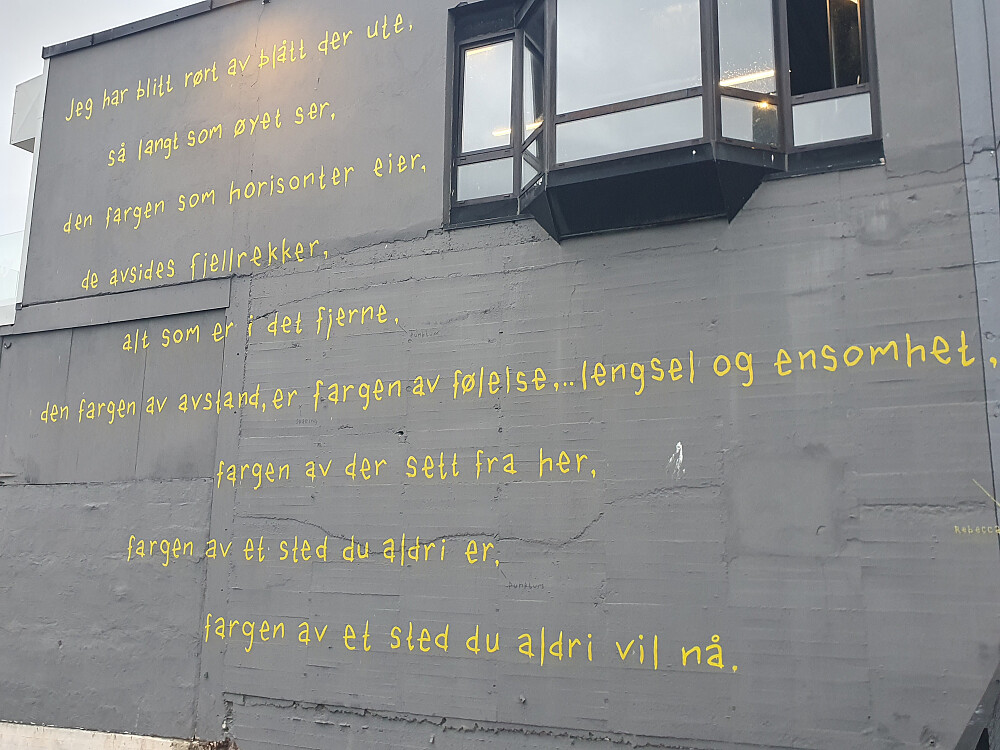 Jeg har blitt rørt av blått der ute,
så langt som øyet ser,
den fargen som horisonter eier,
de avsides fjellrekker,
alt som er i det fjerne,
den fargen av avstand, er fargen av følelse,..lengsel og ensomhet,
fargen av der sett fra her,
fargen av et sted du aldri er,
fargen av et sted du aldri vil nå.